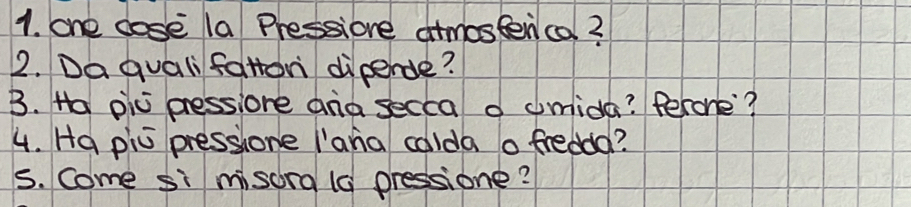 1. Che cosè la Pressione atmosferica?
2. Da quali fattori dipende?
3. Ha più pressione aria secca o umida? Perche'?
4. Ha più pressione l'aria calda o fredda?
5. Come si misura la pressione?